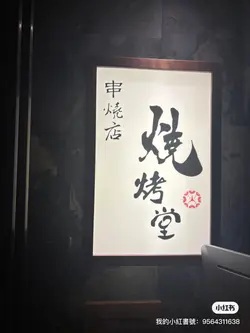 串燒店
燒烤堂
小红书
我的小紅書號：9564311638